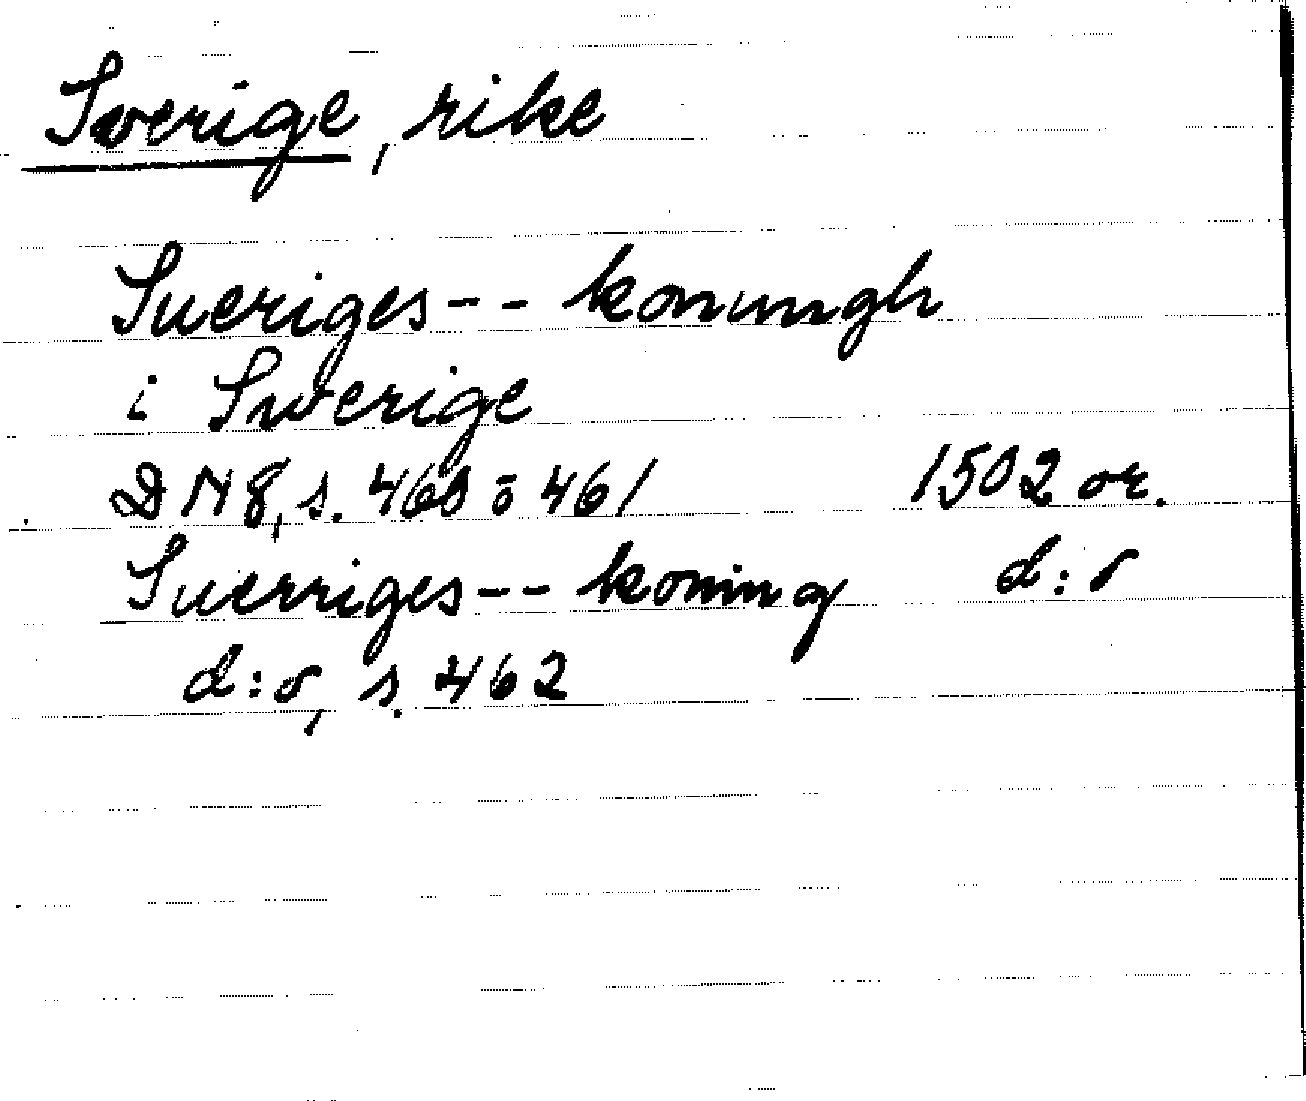 Sverige, rike
Sueriges -- konungh
i Swerige
DN 8, s. 460 o 461 1502 or.
Suerriges -- koning d:o
d:o, s. 462